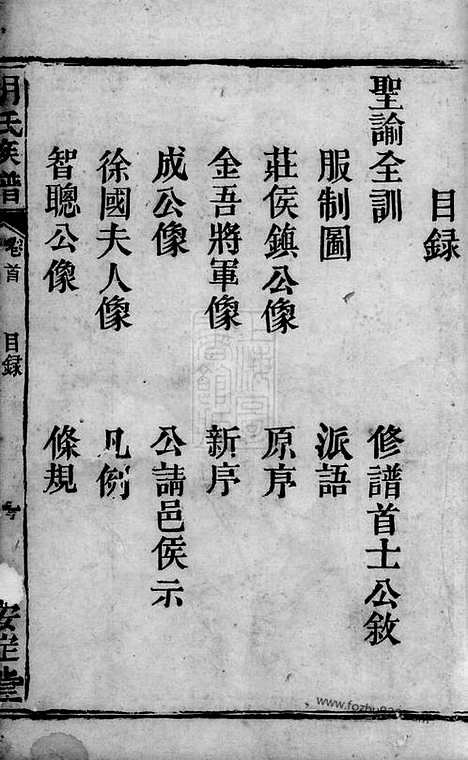 目録
聖諭全訓 修譜首士公敘
服制圖 派語
莊侯鎮公像 原序
金吾將軍像 新序
成公像 公請邑侯示
徐國夫人像 凡例
智聰公像 條規
氏族譜 卷首 目録
www.fozhu920.com